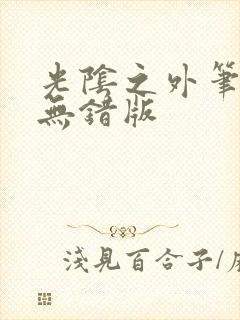 光陰之外筆
無錯版
淺見百合子/